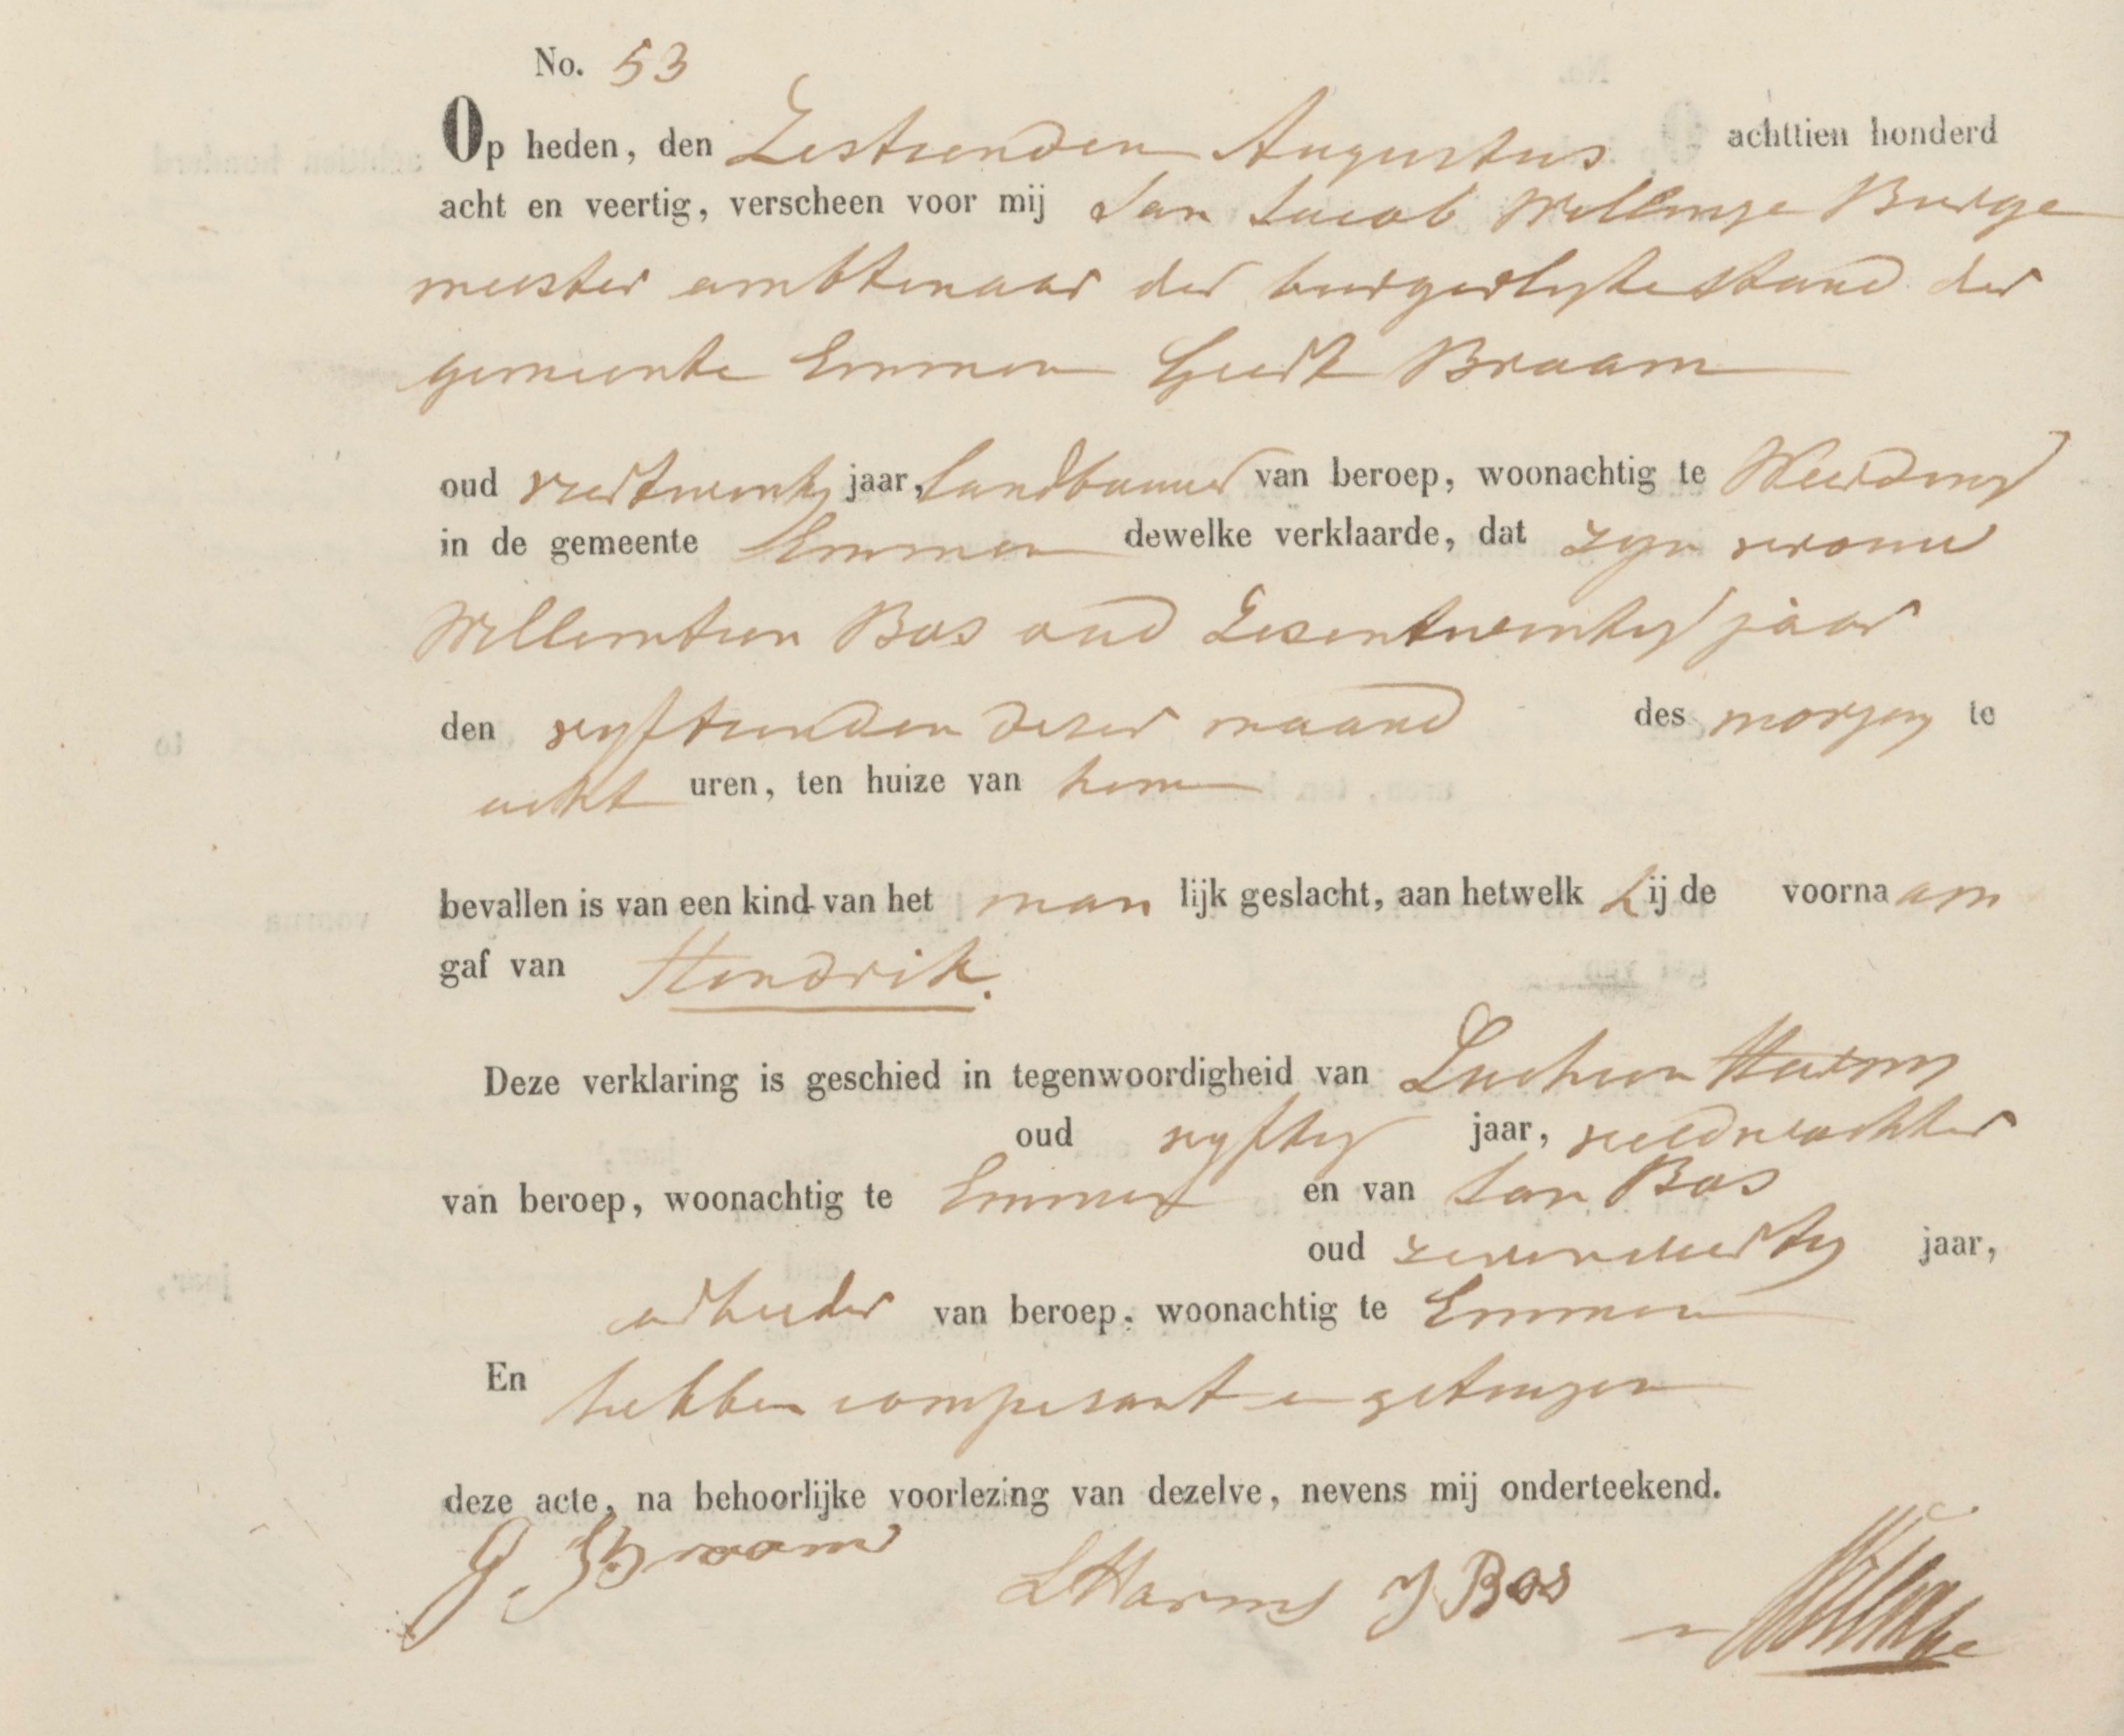 No. 53
Op heden, den Zestienden Augustus achttien honderd
acht en veertig, verscheen voor mij Jan Jacob Willinge Burge
meester ambtenaar der burgerlyke stand der
gemeente Emmen Geert Braam
oud jaar, landbouwer van beroep, woonachtig te Weerding
in de gemeente Emmen dewelke verklaarde, dat zyn vrouw
Willemtien Bos oud Zesentwintig jaar
den vyftienden dezer maand des morgens te
acht uren, ten huize van hem
bevallen is van een kind van het man lijk geslacht, aan hetwelk hij de voornaam
gaf van Hendrik.
Deze verklaring is geschied in tegenwoordigheid van Luchien Harms
oud vyftig jaar, veldwachter
van beroep, woonachtig te Emmen en van Jan Bos
oud jaar,
arbeider van beroep, woonachtig te Emmen
En hebben comparant en getuigen
deze acte, na behoorlijke voorlezing van dezelve, nevens mij onderteekend.
G. Braam
LHarms J Bos Willinge